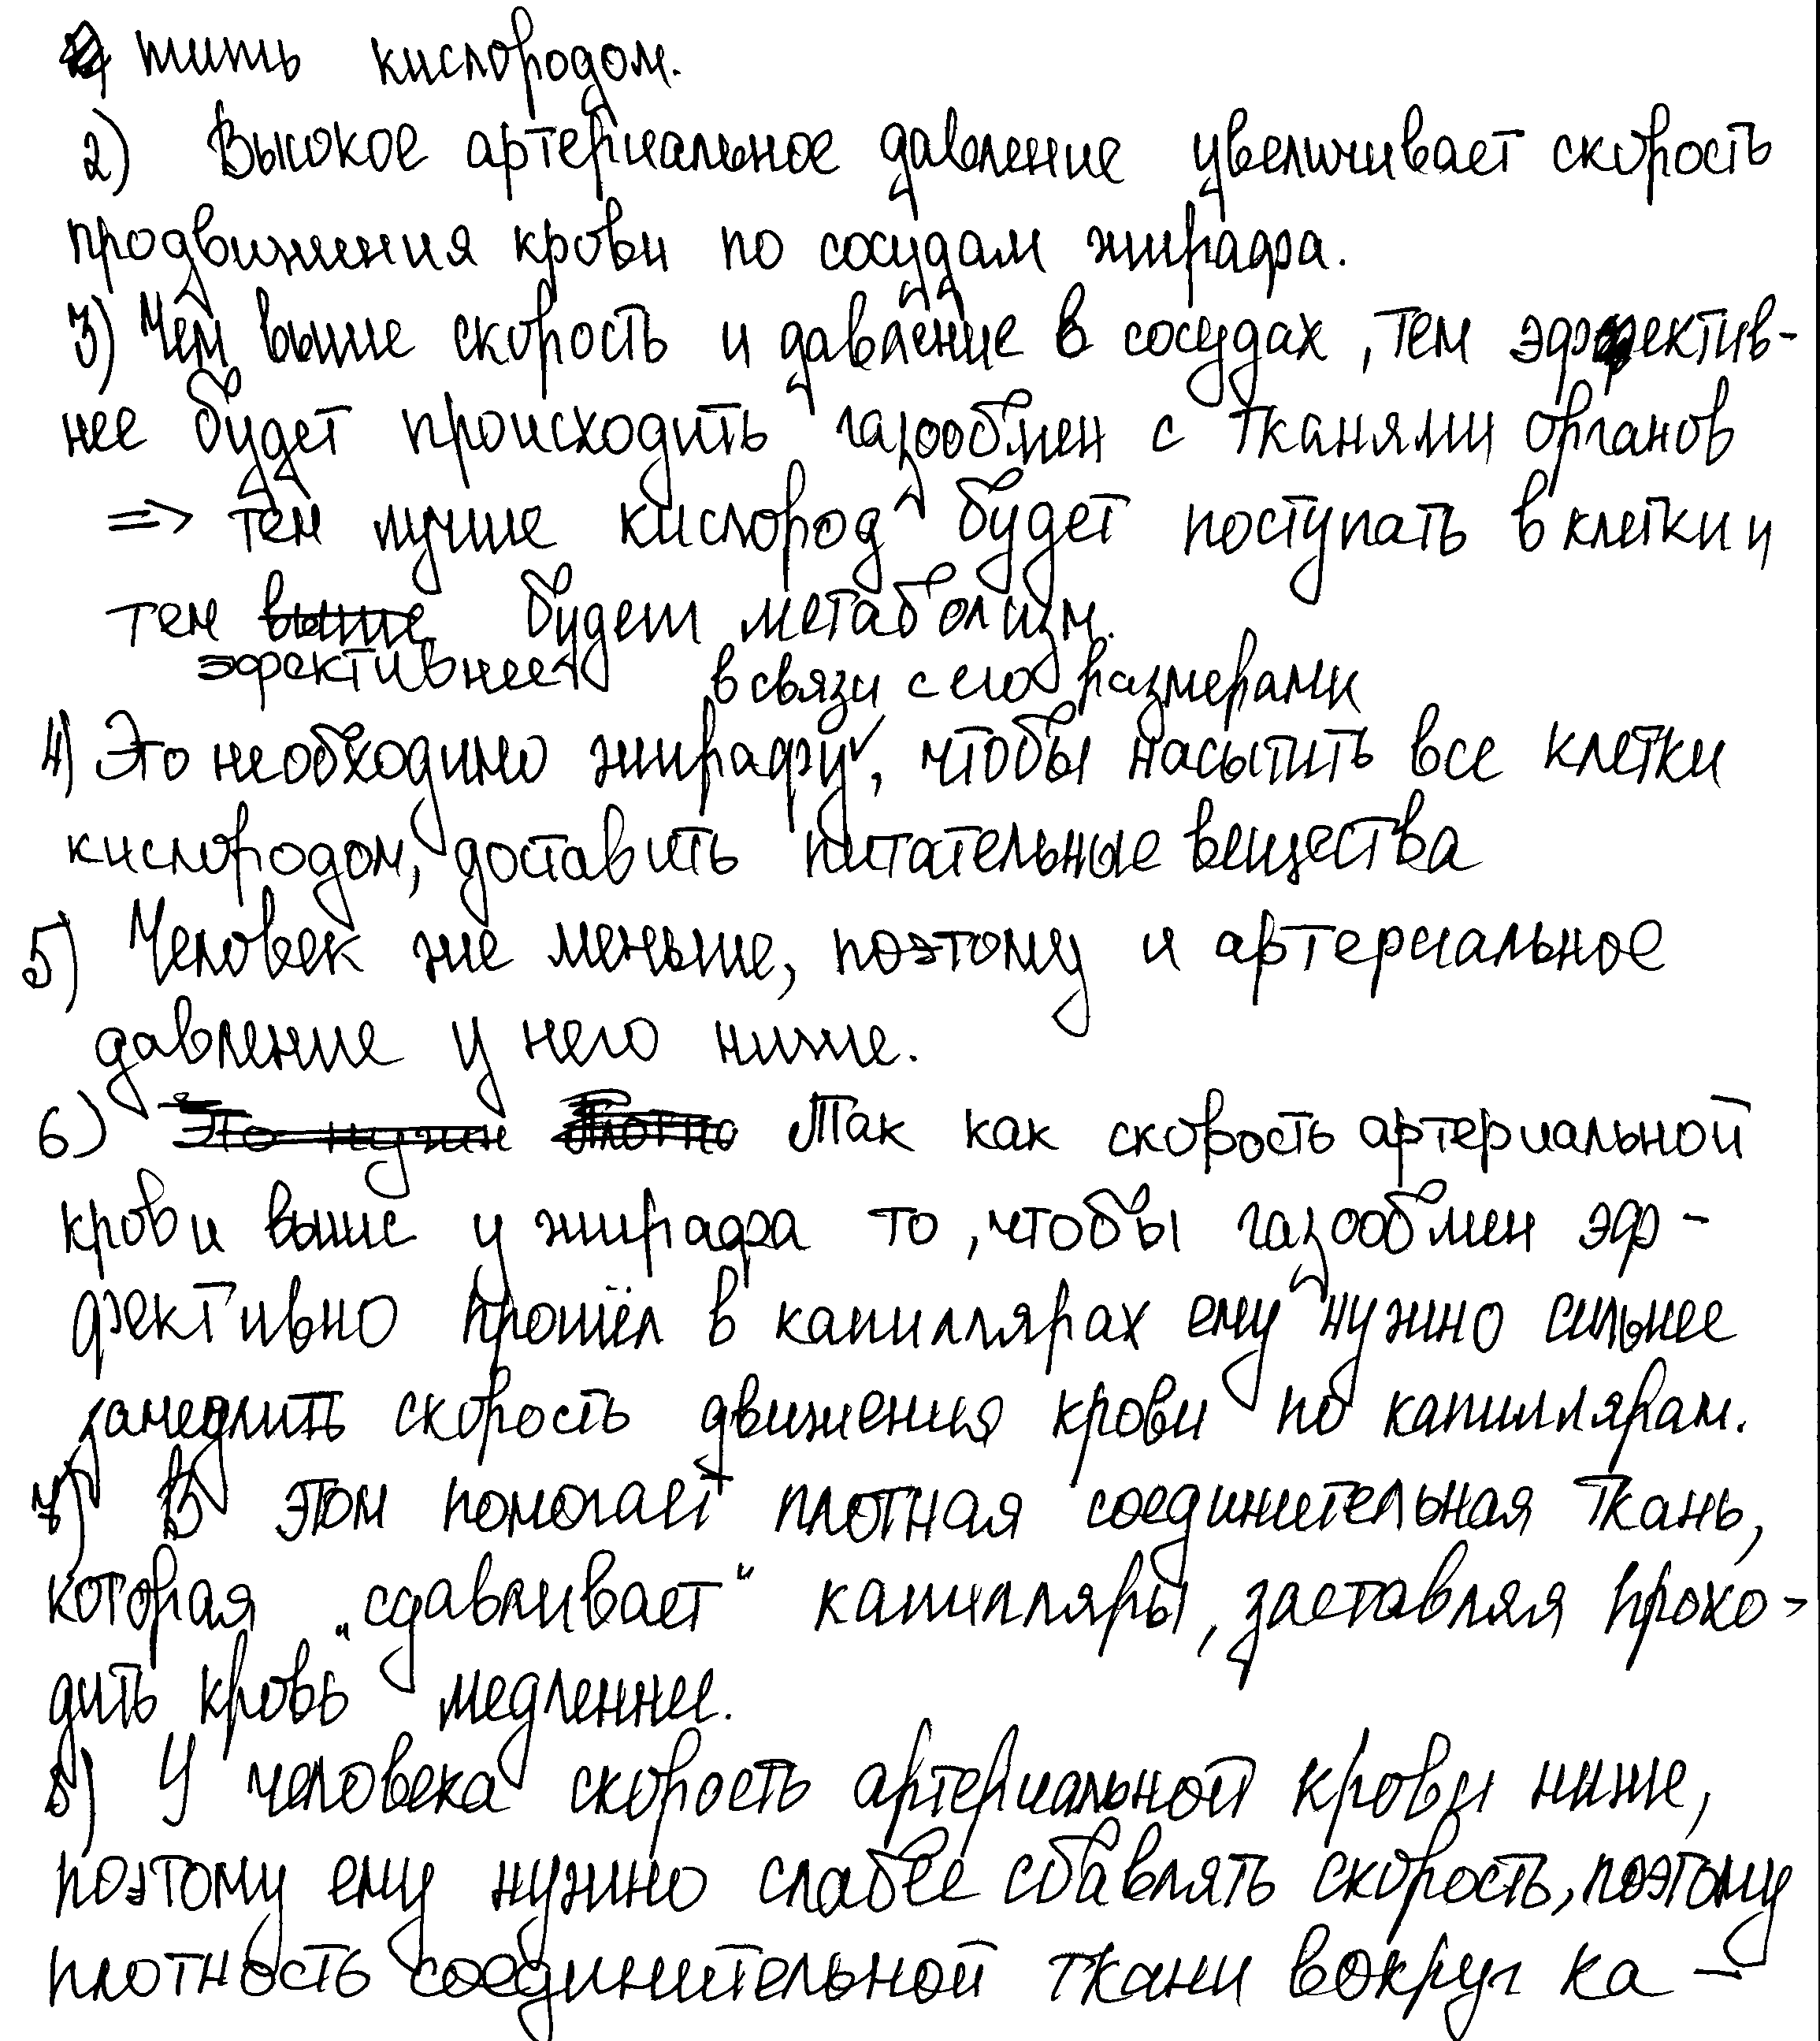 тить кислородом.
2) Высокое артериальное давление увеличивает скорость
продвижения крови по сосудам жирафа.
3) Чем выше скорость и давление в сосудах, тем эффектив-
нее будет происходить газообмен с тканями органов
=> тем лучше кислород будет поступать в клетки и
тем выше будет метаболизм.
эфективнее в связи с его размерами
4) Это необходимо жирафу, чтобы насытить все клетки
кислородом, доставить питательные вещества
5) Человек же меньше, поэтому и артериальное
давление у него ниже.
6) Это нужн Так как скорость артериальной
крови выше у жирафа то, чтобы газообмен эф-
фективно прошёл в капиллярах ему нужно сильнее
замедлить скорость движения крови по капиллярам.
7) В этом помогает плотная соединительная ткань,
которая "сдавливает" капилляры, заставляя прохо-
дить кровь медленнее.
8) У человека скорость артериальной крови ниже,
поэтому ему нужно слабее сбавлять скорость, поэтому
плотность соединительной ткани вокруг ка-